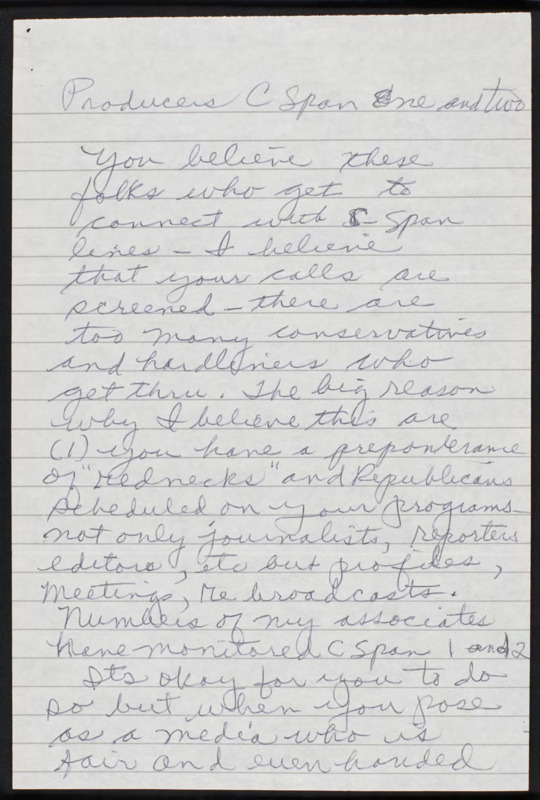 Producers C Span One and two
You believe these
folks who get to
connect with C-Span
lines - I believe
that your calls are
screened - there are
too many conservatives
and hardliners who
get thru. The big reason
why I believe this are
(1) you have a preponderance
of "rednecks" and Republicans
scheduled on your programs -
not only journalists, reporters
editors, etc but profiles,
meetings, re broadcasts.
Numbers of my associates
have monitored C Span 1 and 2
Its okay for you to do
so but when you pose
as a media who is
fair and even-handed